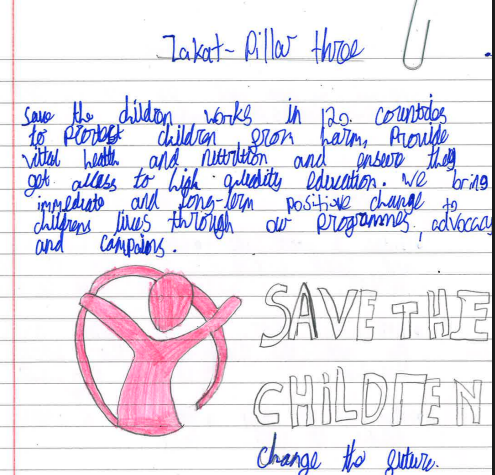 Zakat - Pillar three
Save the children works in 120. countries
to protect children from harm, Provide
vital health and nutrition and ensure they
get access to high quality education. We bring
immediate and long-term positive change to
childrens lives through our programmes, advocacy
and campaigns.
SAVE THE
CHILDREN
Change the future.